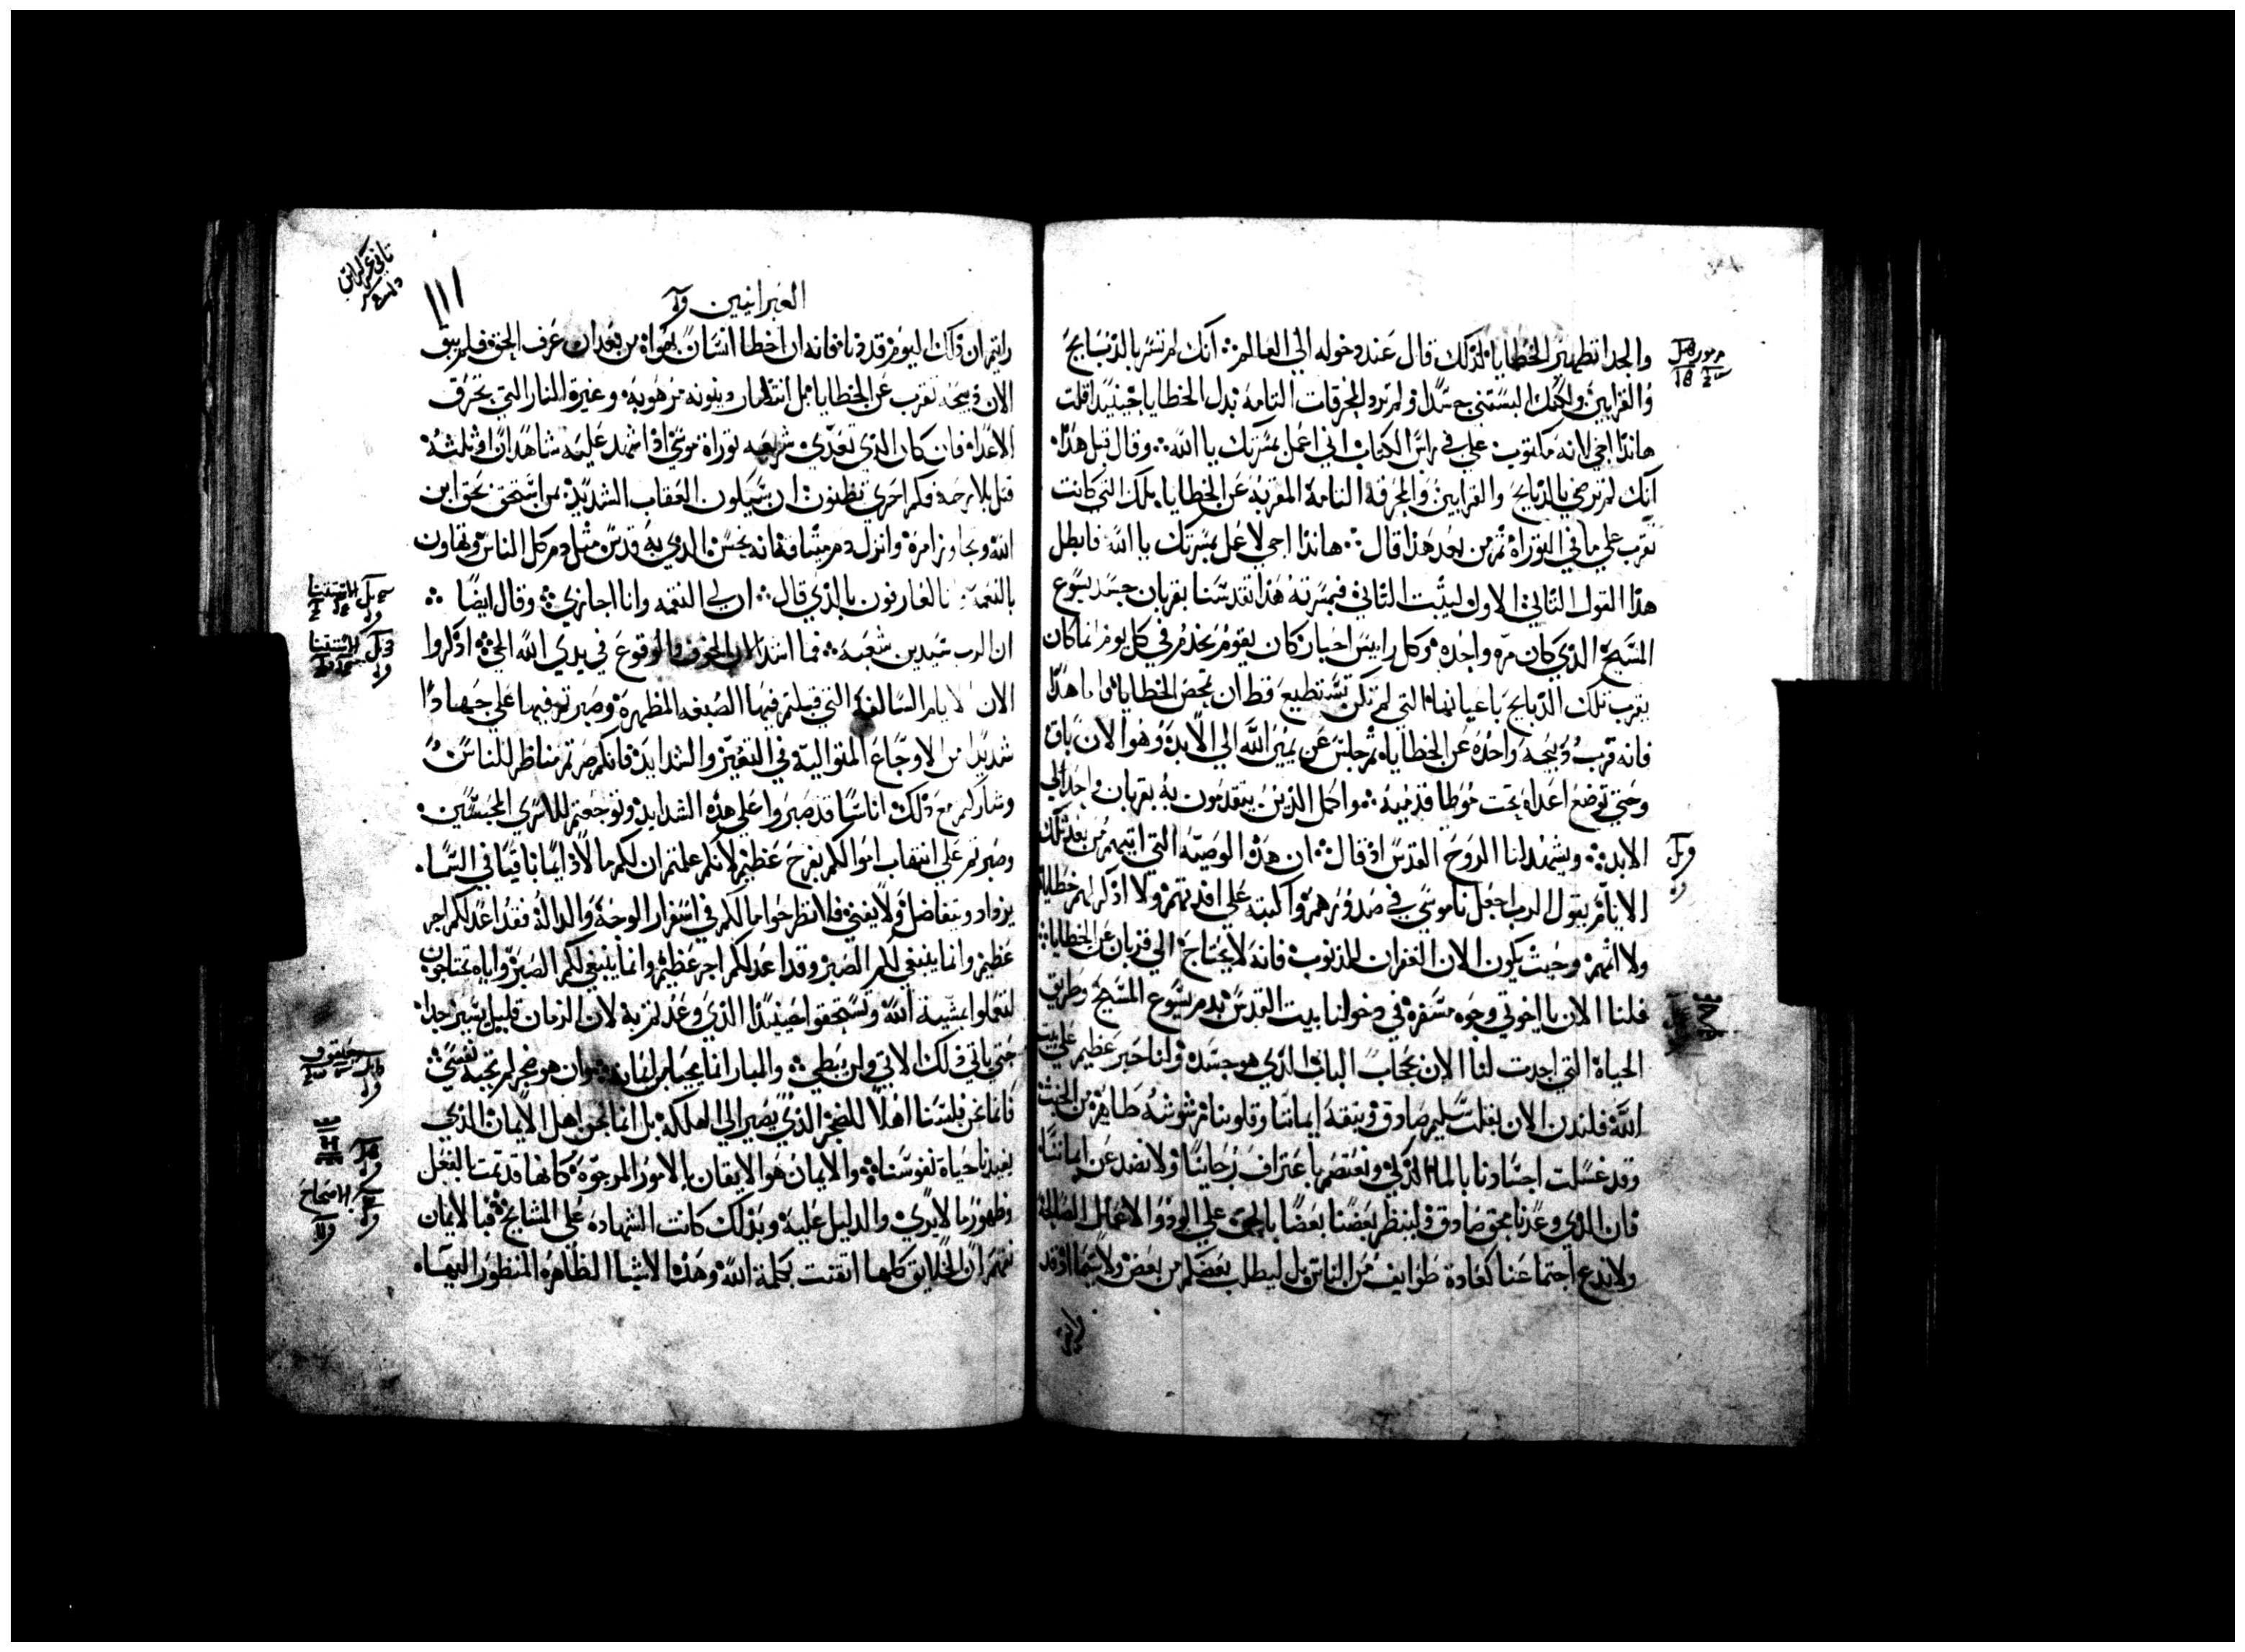 والجدا تطهير الخطايا لذلك قال عند دخوله الي العالم انك لم تسر بالذبايح
والقرابين ولكنك البستني جسدا ولم ترد المحرقات التامه بدل الخطايا حينيذ قلت
هانذا اجي لانه مكتوب علي في راس الكتاب اني اعمل بمسرتك يا الله وقال قبل هذا
انك لم ترضي بالذبايح والقرابين والمحرقه التامه المقربه عن الخطايا تلك التي كانت
تقرب علي ما في التوراه ثم من بعد هذا قال هانذا اجي لاعمل بمسرتك يا الله فابطل
هذا القول الثاني الاول ليثبت الثاني فبمسرته هذا تقدسنا بقربان جسد يسوع
المسيح الذي كان مره واحده وكل راييس احبار كان يقوم يخدم في كل يوم انما كان
يقرب تلك الذبايح باعيانها التي لم تكن تستطيع قط ان تمحص الخطايا واما هذا
فانه قرب ذبيحه واحده عن الخطايا ثم جلس عن يمين الله الي الابد وهو الان باق
وحتي توضع اعداه تحت موطا قدميه واكمل الذين يتقدسون به بقربان واحد الي
الابد ويشهد لنا الروح القدس اذ قال ان هذه الوصيه التي اتيهم من بعد تلك
الايام يقول الرب اجعل ناموسي في صدورهم واكتبه علي افيدتهم ولا اذكر لهم خطاياهم
ولا اثمهم وحيث يكون الان الغفران للذنوب فانه لا يحتاج الي قربان عن الخطايا
فلنا الان يا اخوتي وجوه مسفره في دخولنا بيت القدس بدم يسوع المسيح وطريق
الحياه التي احدثت لنا الان بحجاب الباب الذي هو جسده ولنا حبر عظيم علي بيت
الله فلندن الان بقلب سليم صادق وبثقه ايماننا وقلوبنا مرشوشه طاهره من الخبث
وقد غسلت اجسادنا بالما الذكي ونعتصم باعتراف رجاينا ولا نضد عن ايماننا
فان الذي وعدنا محق صادق ولينظر بعضنا بعضا بالحث علي الود والاعمال الصالحه
ولا ندع اجتماعنا كعادة طوايف من الناس بل ليطلب بعضكم من بعض ولا سيما اذ قد
رايتم
العبرانيين
١١١
رايتم ان ذلك اليوم قد دنا فانه ان اخطا انسان بهواه من بعد ان عرف الحق فلم يبق
الان ذبيحه تقرب عن الخطايا بل انتظار دينونه مرهوبه وغيرة النار التي تحرق
الاعدا فان كان الذي تعدي شريعه توراه موسي اذا شهد عليه شاهدان او ثلثه
قتل بلا رحمه فكم احري تظنون ان سيكون العقاب الشديد بمن استخف بحق ابن
الله وتجاوز امره وانزل دم ميثاقه انه نجس الذي به قدس مثل دم كل الناس وتهاون
بالنعمه انا لعارفون بالذي قال ان لي النقمه وانا اجازي وقال ايضا
ان الرب سيدين شعبه فما اشد الان الخوف والوقوع في يدي الله الحي اذكروا
الان الايام السالفه التي قبلتم فيها الصبغه المطهره وصبرتم فيها علي جهاد
شديد من الاوجاع المتواليه في التعيير والشدايد فانكم صرتم مناظر للناس
وشاركتم مع ذلك اناسا قد صبروا علي هذه الشدايد وتوجعتم للاسري المحبسين
وصبرتم علي انتهاب اموالكم بفرح عظيم لانكم علمتم ان لكم مالا دايما باقيا في السما
يزداد ويتفاضل ولا يفني فلا تطرحوا ما لكم في اسفار الوجه والداله فقد اعد لكم اجر
عظيم وانما ينبغي لكم الصبر وقد اعد لكم اجر عظيم وانما ينبغي لكم الصبر واياه تحتاجون
لتعملوا بمشيه الله وتستحقوا حينيذ الذي وعدتم به لان الزمان قليل يسير جدا
حتي ياتي ذلك الاتي ولن يبطي والبار انما يحيا من ايمانه وان هو ضجر لم تحبه نفسي
فاما نحن فلسنا اهلا للضجر الذي يصير الي الهلكه بل انما نحن اهل الايمان الذي
يفيدنا حياه نفوسنا والايمان هو الايقان بالامور المرجوه كانها قد تمت بالفعل
وظهور ما لا يري والدليل عليه وبذلك كانت الشهاده علي المشايخ فبالايمان
نفهم ان الخلايق كلها اتقنت بكلمة الله وهذه الاشيا الظاهره المنظور اليها